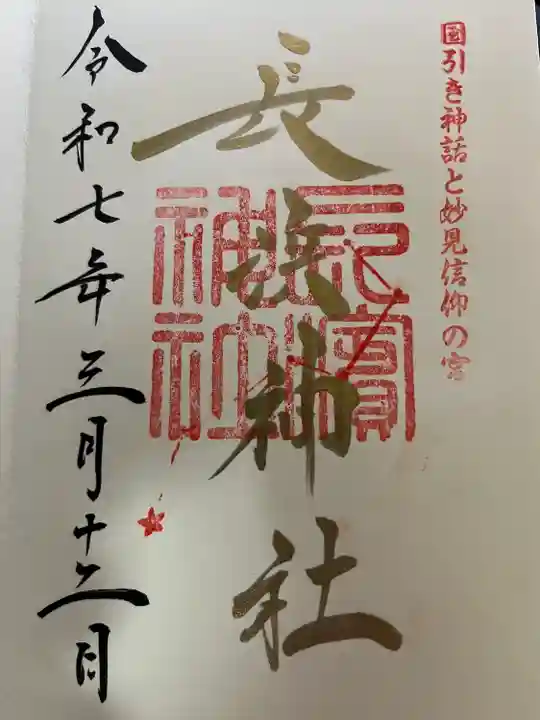 国引き神話と妙見信仰の宮
長浜神社
長濱神社
令和七年三月十二日